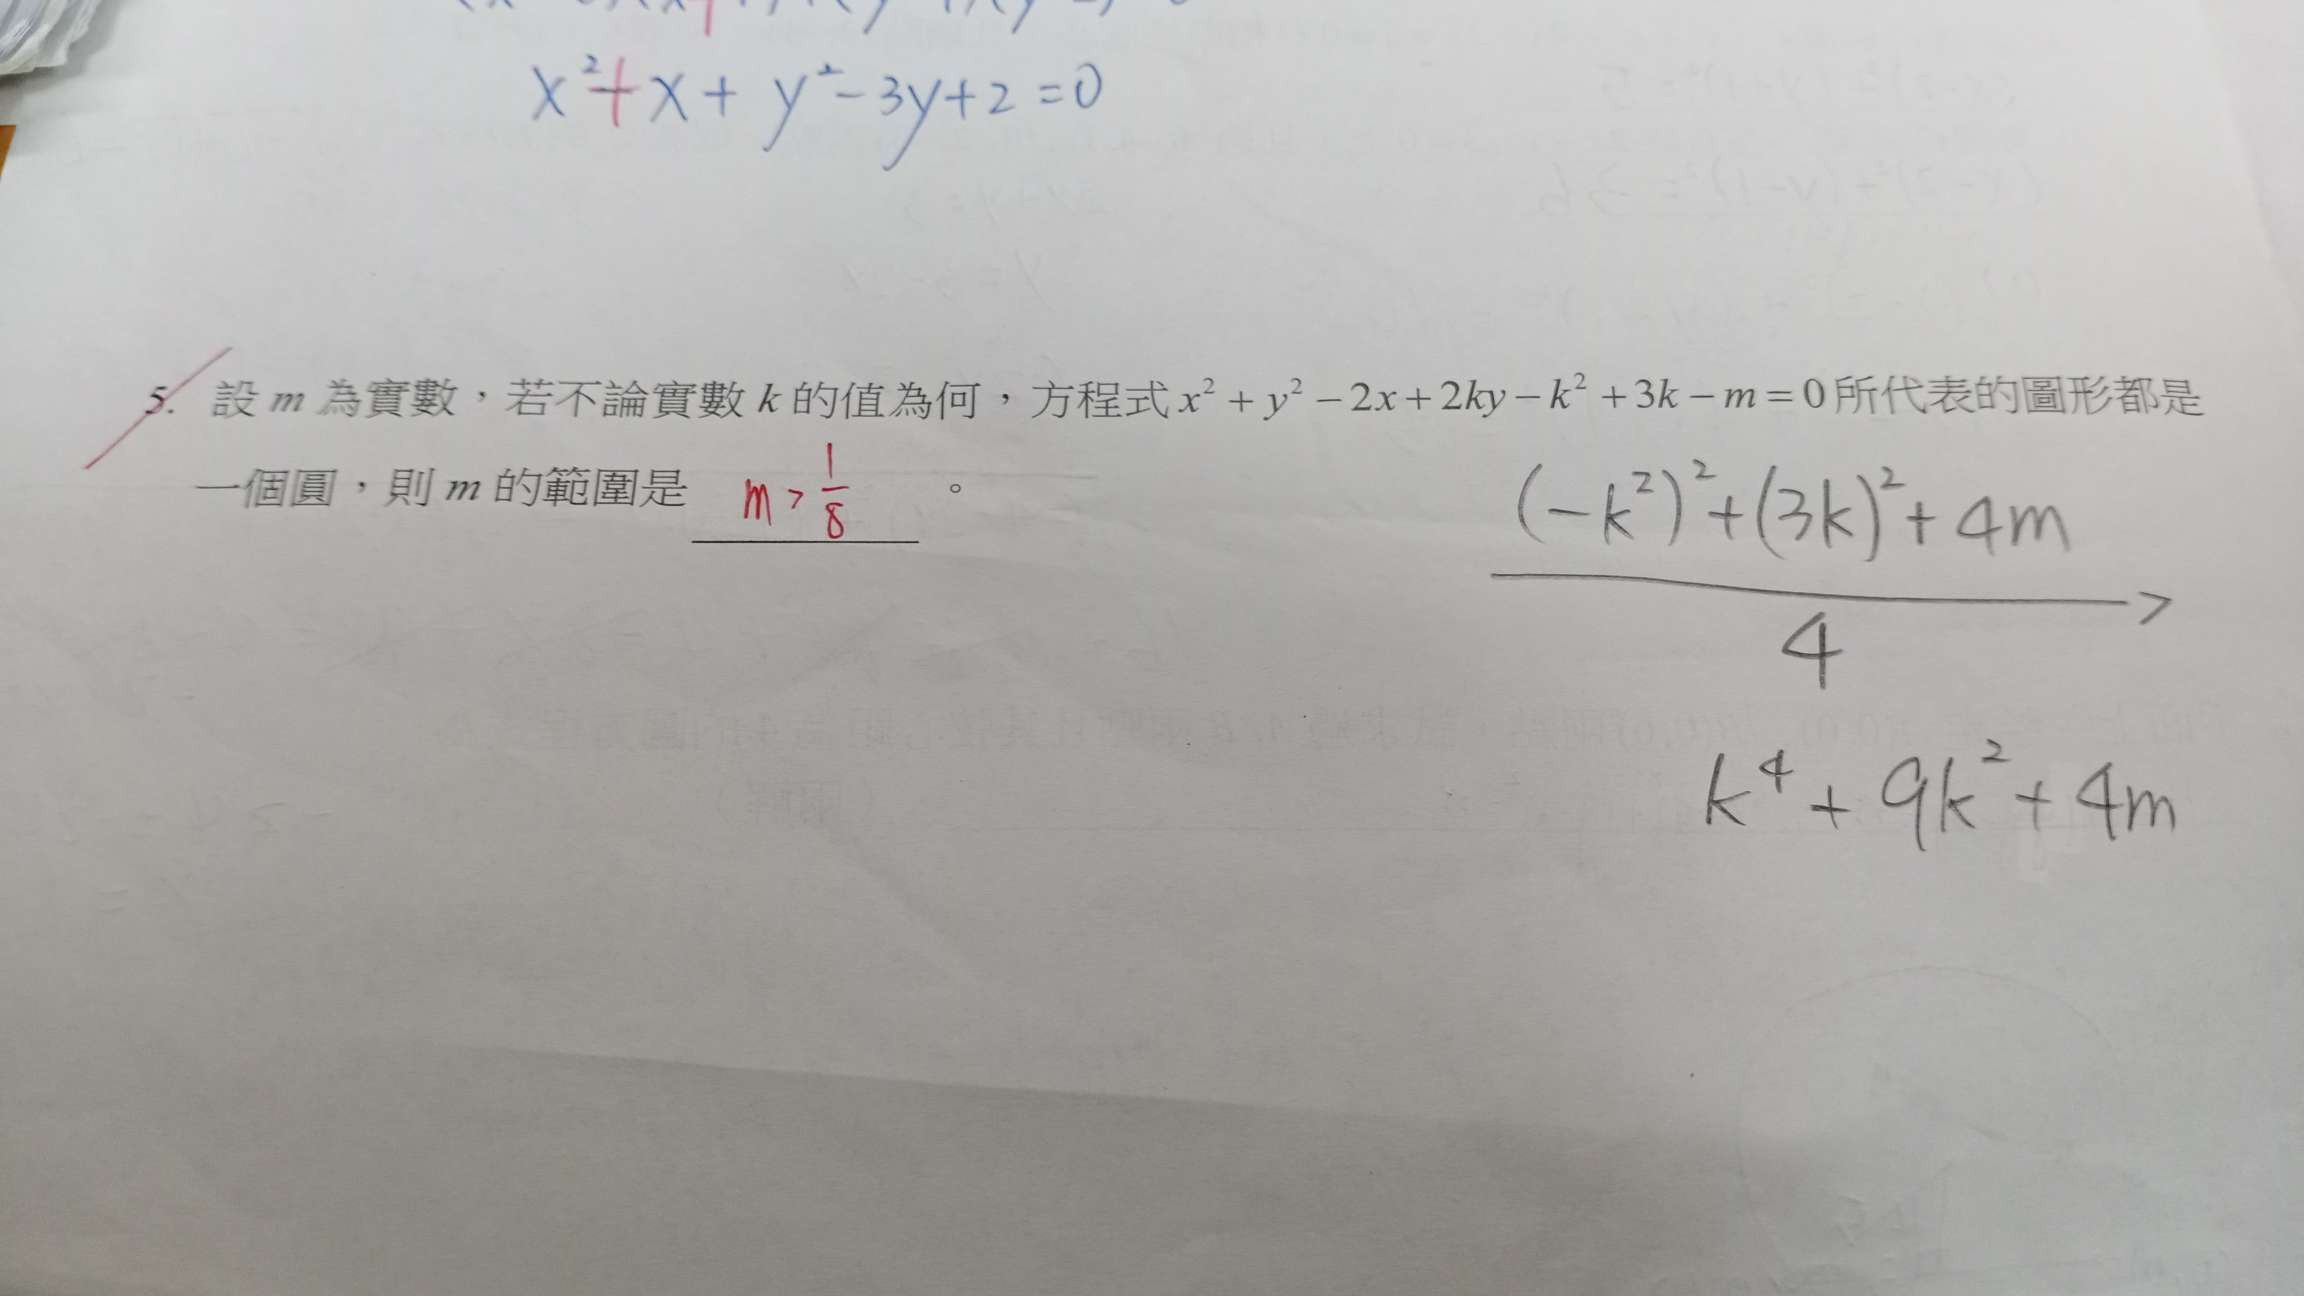 x²+x+y²-3y+2=0
5. 設 m 為實數，若不論實數 k 的值為何，方程式 x²+y²-2x+2ky-k²+3k-m=0 所代表的圖形都是
一個圓，則 m 的範圍是 m > 1/8 。
(-k²)²+(3k)²+4m
4 >
k⁴+9k²+4m